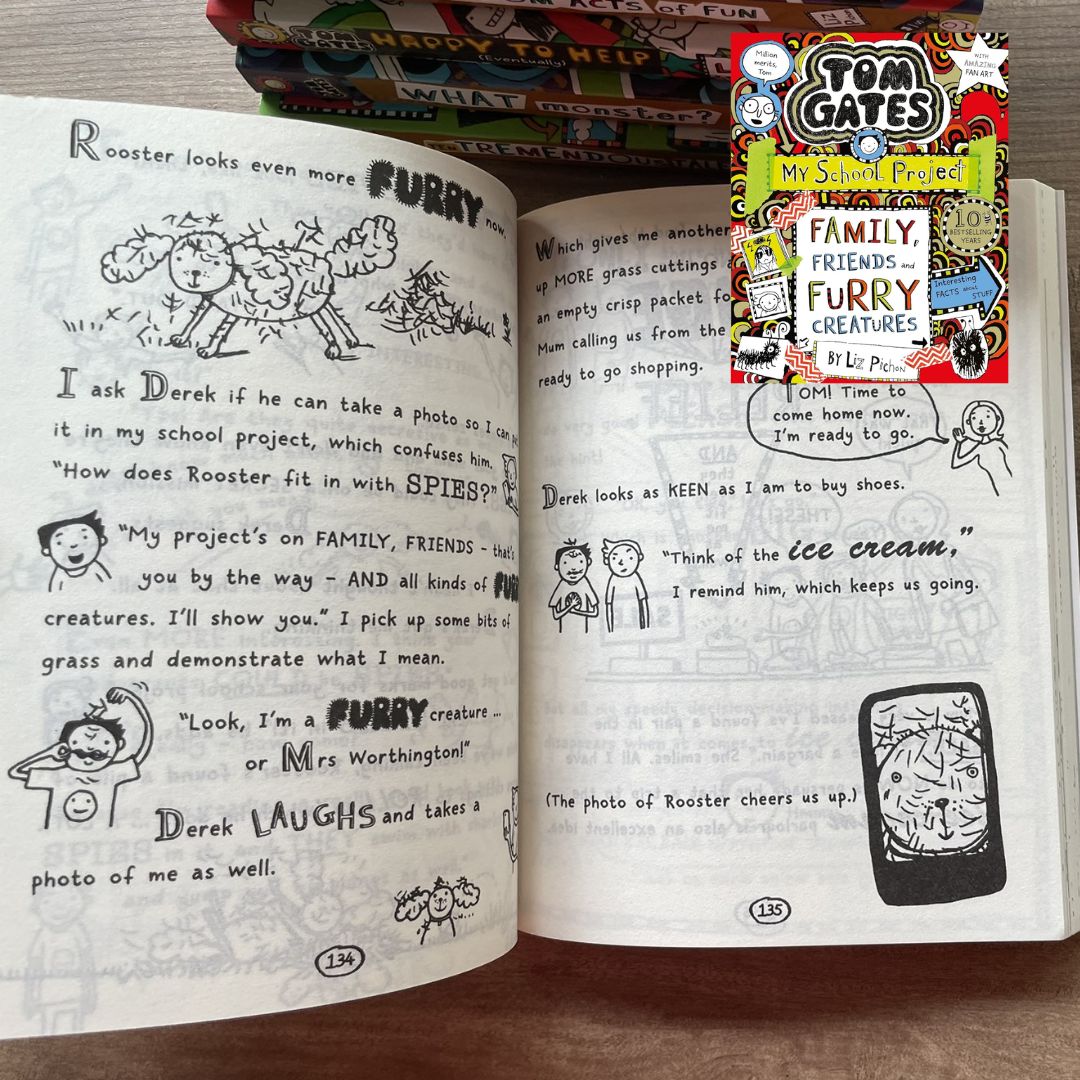 OM ACTS OF FUN
TOM GATES HAPPY TO HELP
(Eventually)
WHAT monster?
TREMENDOUS TAL
Million
merits,
Tom
TOM
GATES
WITH
AMAZING
FAN ART
MY SCHOOL PROJECT
10
BESTSELLING
YEARS
FAMILY,
FRIENDS and
FURRY
CREATURES
Interesting
FACTS about
STUFF
BY LIZ PICHON
Rooster looks even more FURRY now.
I ask Derek if he can take a photo so I can
it in my school project, which confuses him.
"How does Rooster fit in with SPIES?"
"My project's on FAMILY, FRIENDS – that's
you by the way – AND all kinds of
creatures. I'll show you." I pick up some bits of
grass and demonstrate what I mean.
"Look, I'm a FURRY creature ...
or Mrs Worthington!"
Derek LAUGHS and takes a
photo of me as well.
134
Which gives me another
up MORE grass cuttings
an empty crisp packet
Mum calling us from the
ready to go shopping.
TOM! Time to
come home now.
I'm ready to go.
Derek looks as KEEN as I am to buy shoes.
"Think of the ice cream,"
I remind him, which keeps us going.
(The photo of Rooster cheers us up.)
135